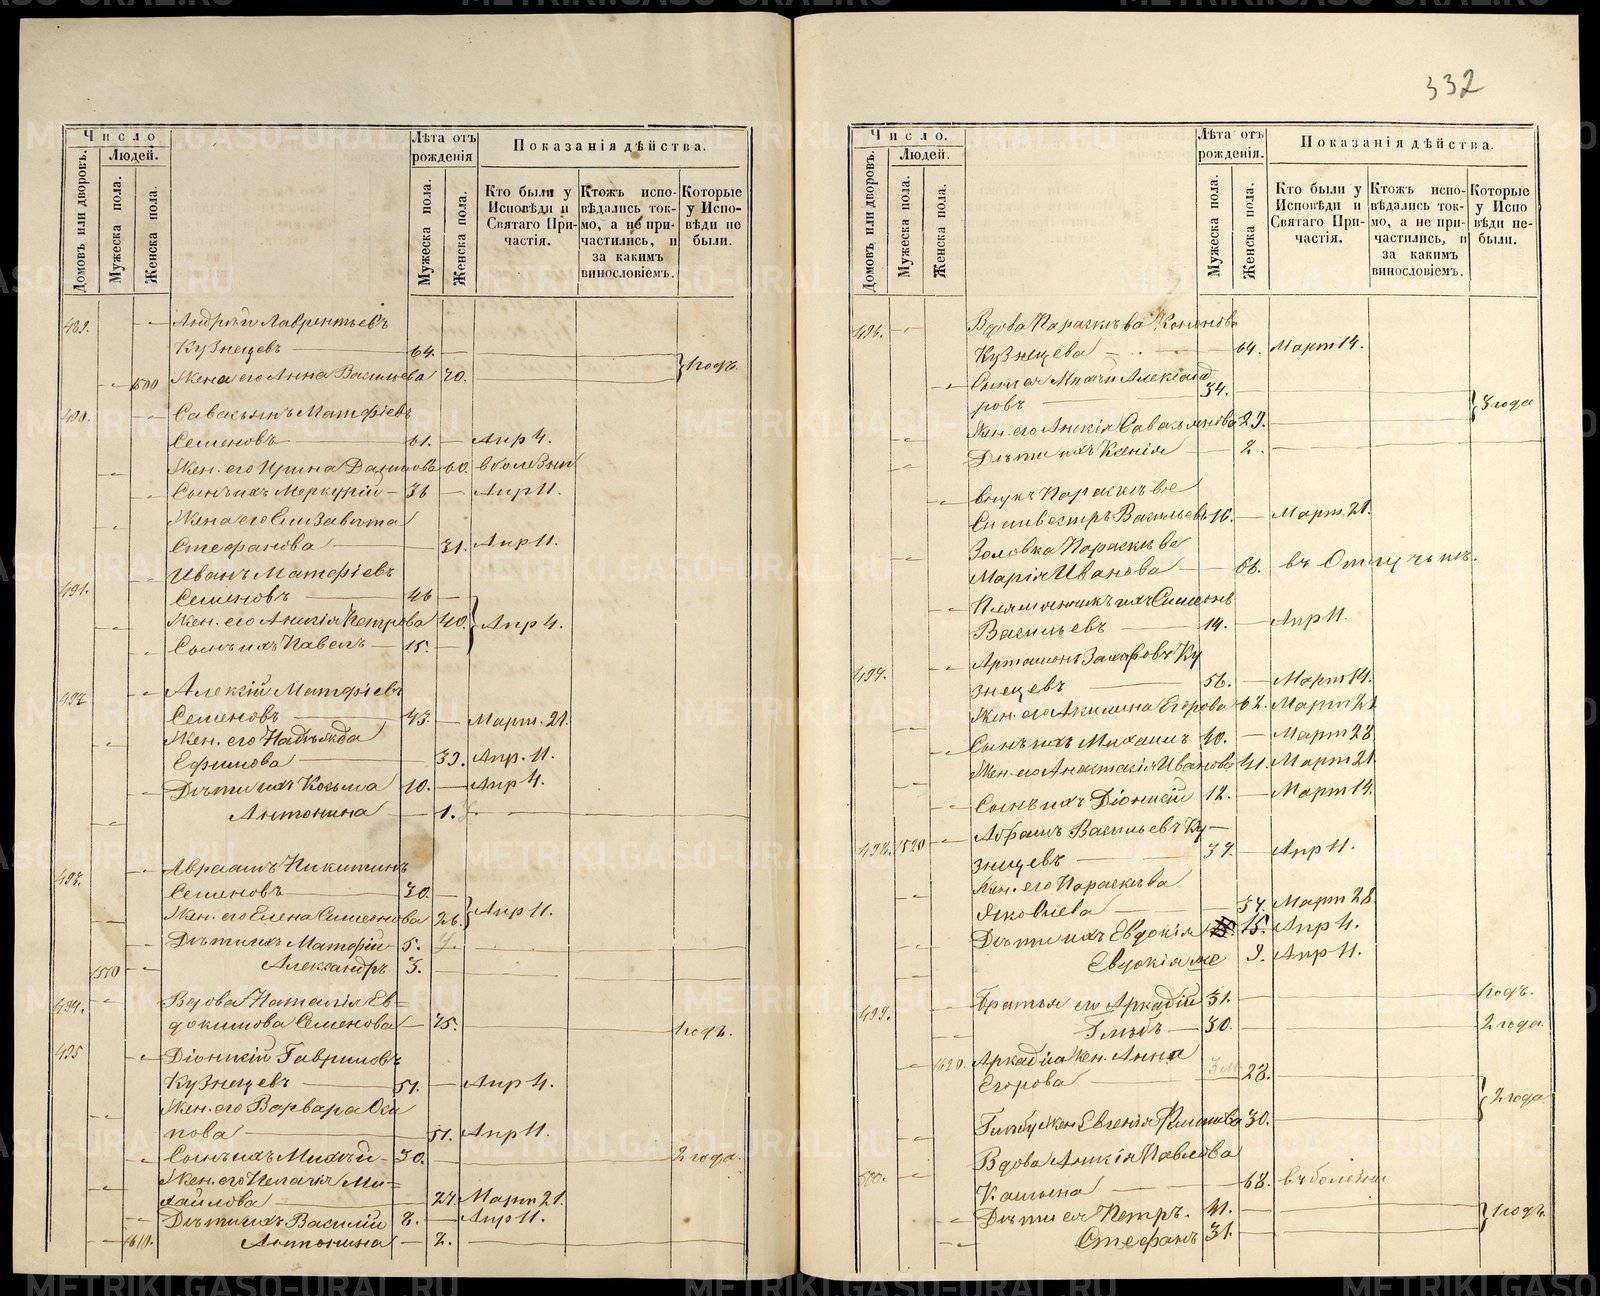 332
Число
Людей.
Домовъ или дворовъ.
Мужеска пола.
Женска пола.
Лѣта отъ рожденія
Мужеска пола.
Женска пола.
Показанія дѣйства.
Кто были у Исповѣди и Святаго Причастія.
Ктожъ исповѣдались токмо, а не причастились, и за какимъ винословіемъ.
Которые у Исповѣди не были.
489. Андрей Лаврентьевъ
Кузнецевъ 64.
1500 Жена его Анна Васильева 70. 1 годъ.
490. Савватѣинъ Матфіевъ
Семеновъ 61. Апр 4.
Жен. его Ирина Данилова 60. в болезни
Сынъ ихъ Меркурій 36 Апр 11.
Жена его Елизавета
Стефанова 31. Апр 11.
491. Иванъ Матфіевъ
Семеновъ 46
Жен. его Анисія Петрова 40. Апр 4.
Сынъ ихъ Павелъ 15.
492 Алексій Матфіевъ
Семеновъ 43. Март. 21.
Жен. его Надѣжда
Ефимова 39. Апр. 11.
Дѣти ихъ Козьма 10. Апр 4.
Антонина 1.
493. Авраамъ Никитинъ
Семеновъ 30.
Жен. его Елена Симеонова 26. Апр 11.
Дѣти ихъ Матфій 5.
1510 Александръ 3.
494. Вдова Наталія Ев=
докимова Семенова 75. 1 годъ.
495 Діонисій Гавриловъ
Кузнецевъ 51. Апр 4.
Жен. его Варвара Оси
пова 51. Апр 11.
Сынъ ихъ Михаил 30. 2 года.
Жен. его Пелагія Ми=
хайлова 27. Март 21.
Дѣти ихъ Василій 8. Апр 11.
1610. Антонина 2.
Число.
Людей.
Домовъ или дворовъ.
Мужеска пола.
Женска пола.
Лѣта отъ рожденія.
Мужеска пола.
Женска пола.
Показанія дѣйства.
Кто были у Исповѣди и Святаго Причастія.
Ктожъ исповѣдались токмо, а не причастились, и за какимъ винословіемъ.
Которые у Исповѣди небыли.
496. Вдова Параскѣва Кононова
Кузнецева 64. Март 14.
Сынъ ея Михаил Александ
ровъ 34.
Жен. его Анисія Савватѣянова 29. 3 года
Дѣти ихъ Ксенія 2.
внукъ Параскѣвы
Сильвестръ Васильевъ 16. Март 21.
Золовка Параскѣвы
Марія Иванова 66. въ Отлучькѣ.
Племянникъ ихъ Симеонъ
Васильевъ 14. Апр 11.
497. Артамонъ Захаровъ Ку
знецевъ 56. Март 14.
Жен. его Акилина Егорова 62. Март 21
Сынъ ихъ Михаилъ 40. Март 28
Жен. его Анастасія Иванова 41. Март 21
Сынъ ихъ Діонисій 12. Март 14.
498. 1520 Абрамъ Васильевъ Ку
знецевъ 37. Апр 11.
Жен. его Параскѣва
Яковлева 37. Март 28.
Дѣти ихъ Евдокія 15. Апр 4.
Евдокія же 9. Апр 11.
499. Братья его Аркадій 31. 1 годъ.
Глѣбъ 30. 2 года.
1620. Аркадія жен. Анна
Егорова 28.
Глѣбу жен Евгенія Филипова 30. 2 года
500. Вдова Анисія Павлова
Кашина 68. въ болѣзни
Дѣти ея Петръ. 41. 1 годъ
Стефанъ 31.
METRIKI.GASO-URAL.RU